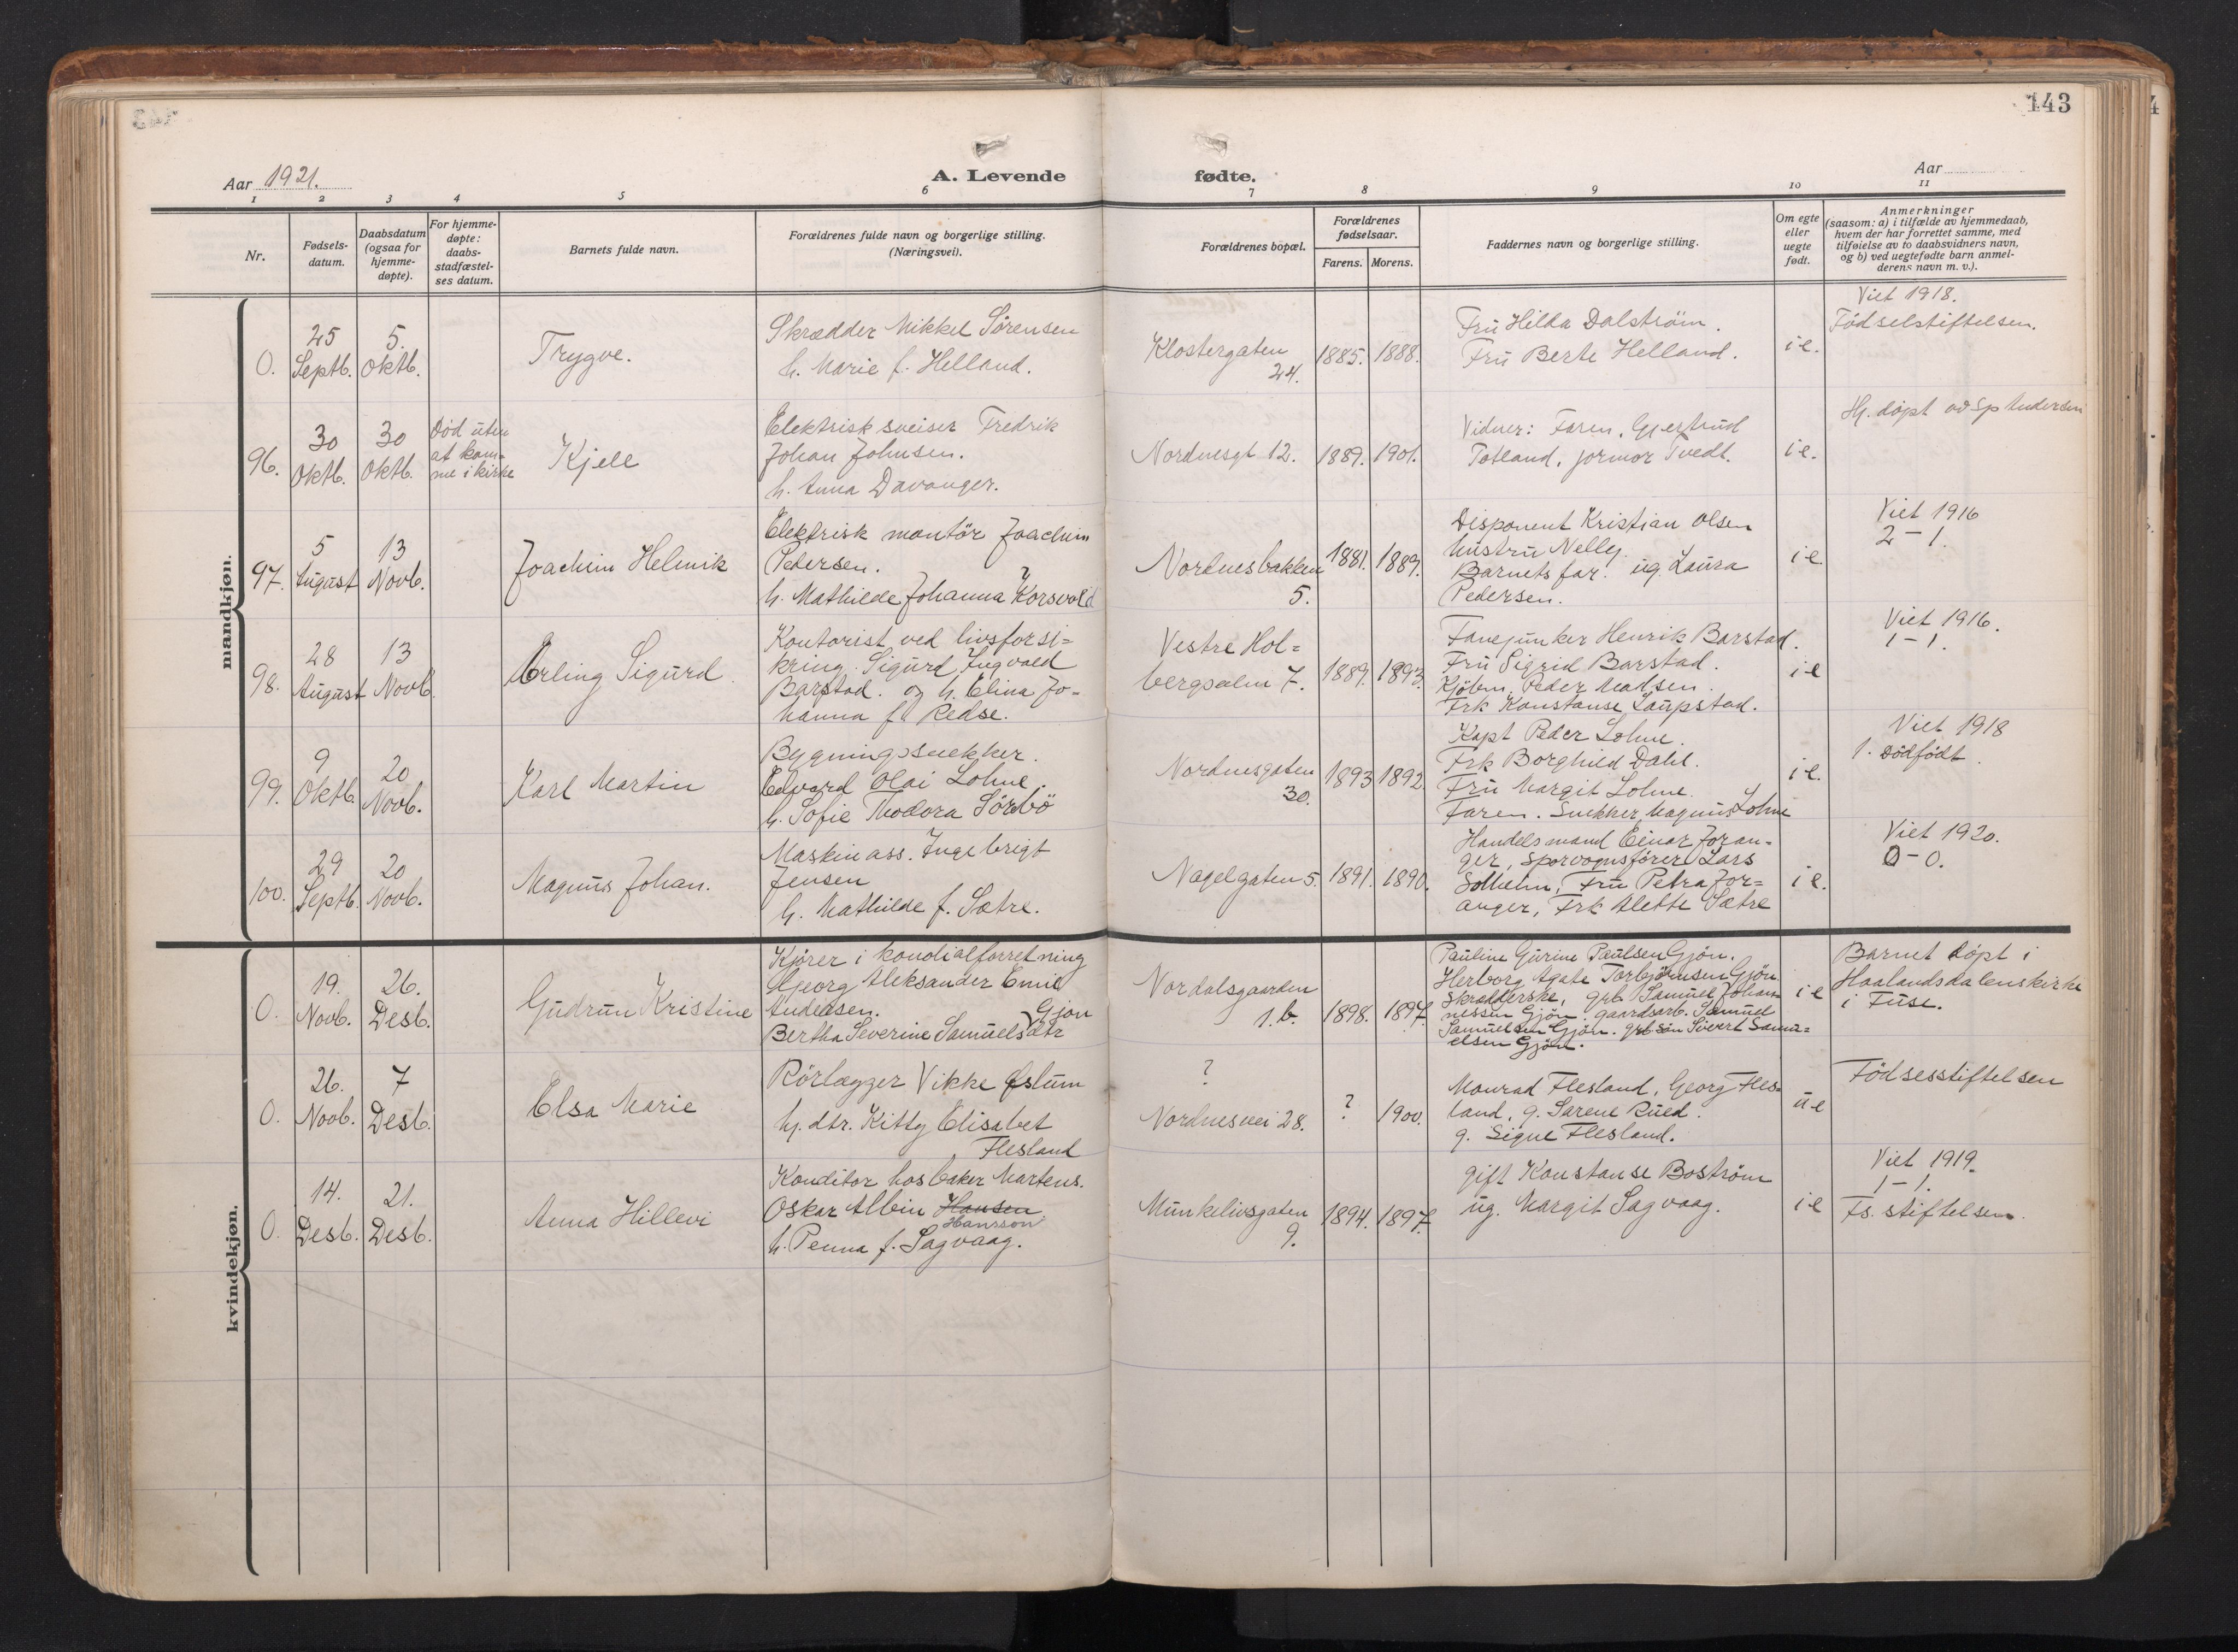 143
Aar 1921.
A. Levende fødte.
Aar
1 2 3 4 5 6 7 8 9 10 11
Nr.
Fødsels-
datum.
Daabsdatum
(ogsaa for
hjemme-
døpte).
For hjemme-
døpte:
daabs-
stadfæstel-
ses datum.
Barnets fulde navn.
Forældrenes fulde navn og borgerlige stilling.
(Næringsvei).
Forældrenes bopæl.
Forældrenes
fødselsaar.
Farens. Morens.
Faddernes navn og borgerlige stilling.
Om egte
eller
uegte
født.
Anmerkninger
(saasom: a) i tilfælde av hjemmedaab,
hvem der har forrettet samme, med
tilføielse av to daabsvidners navn,
og b) ved uegtefødte barn anmel-
derens navn m. v.).
mandkjøn.
0.
25
Septb.
5.
Oktb.
Trygve.
Skrædder Mikkel Sörensen
h. Marie f. Helland.
Klostergaten
24.
1885. 1888.
Fru Hilda Dalström.
Fru Berte Helland.
i e.
Viet 1918.
Födselstiftelsen.
96.
30
Oktb.
30
Oktb.
Död uten
at kom-
me i kirke
Kjell
Elektrisk sveiser Fredrik
Johan Johnsen.
h. Anna Davanger.
Nordnesgt 12.
1889. 1901.
Vidner: Faren. Gjertrud
Totland, jormor Tvedt.
i e.
Hj. döpt av Sp Andersen
97.
5
August
13
Novb.
Joachim Helmik
Elektrisk montör Joachim
Pedersen.
h. Mathilde Johanna Korsvold
Nordnesbakken
5.
1881. 1889.
Disponent Kristian Olsen
hustru Nelly.
Barnets far. ug. Laura
Pedersen.
i e
Viet 1916
2 - 1.
98.
28
August
13
Novb.
Erling Sigurd.
Kontorist ved livsforsi=
kring. Sigurd Ingvald
Barstad. og h. Elina Jo-
hanna f. Redse.
Vestre Hol=
bergsalm 7.
1889. 1893.
Fanejunker Henrik Barstad.
Fru Sigrid Barstad.
Kjöbm. Peder Madsen.
Frk Konstanse Laupstad.
i e
Viet 1916.
1 - 1.
99.
9
Oktb.
20
Novb.
Karl Martin
Bygningssnekker.
Edvard Olai Lohne,
h. Sofie Theodora Sörbö
Nordnesgaten
30.
1893 1892.
Kapt Peder Lohne.
Frk Borghild Dahl.
Fru Margit Lohne.
Faren. Snekker Magnus Lohne
i e.
Viet 1918
1. Dödfödt.
100.
29
Septb.
20
Novb.
Magnus Johan.
Maskinass. Ingebrigt
Jensen
h. Mathilde f. Sætre.
Nagelgaten 5.
1891. 1890.
Handelsmand Einar Joran-
ger, sporvognsförer Lars
Solheim, Fru Petra Jor=
anger, Frk Alette Sætre
i e.
Viet 1920.
0 - 0.
kvindekjøn.
0.
19.
Novb.
26.
Desb.
Gudrun Kristine
Kjører i kondialforretning
Georg Aleksander Emil
Andersen. Gjön
Bertha Severine Samuelsdtr
Nordalsgaarden
1. b.
1898. 1897.
Pauline Gurine Paulsen Gjön.
Herborg Agate Torbjörnsen Gjön
Skrædderske, grb Samuel Johan-
nessen Gjön. gaardsarb. Samuel
Samuelsen Gjön. grb sön Sivert Samu=
elsen Gjön.
i e
Barnet döpt i
Haalandsdalens kirke
i Fuse.
0.
26.
Novb.
7
Desb.
Elsa Marie
Rörlægger Vikke Øslum
hj. dtr. Kitty Elisabet
Flesland
?
Nordnesvei 28.
? 1900.
Monrad Flesland, Georg Fles-
land, g. Sarene Rued.
g. Signe Flesland.
u e
Födsesstiftelsen
0.
14.
Desb.
21.
Desb.
Anna Hillevi
Konditor hos baker Martens.
Oskar Albin Hansen
Hansson
h. Penna f. Sagvaag.
Munkelivsgaten
9.
1894. 1897.
gift Konstanse Boström
ug. Margit Sagvaag.
i e
Viet 1919.
1 - 1.
Fs. stiftelsen.